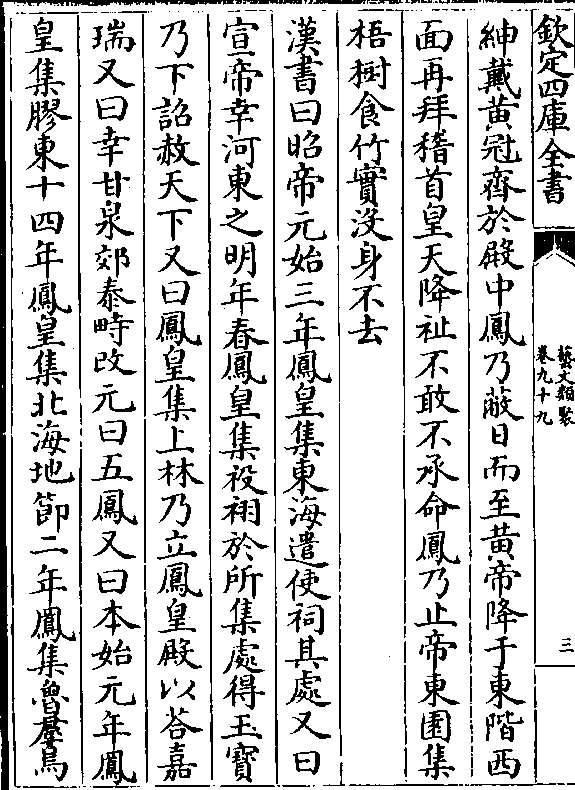 欽定四庫全書
藝文類聚
卷九十九
三
紳戴黃冠齊於殿中鳳乃蔽日而至黃帝降于東階西
面再拜稽首皇天降祉不敢不承命鳳乃止帝東園集
梧樹食竹實沒身不去
漢書曰昭帝元始三年鳳皇集東海遣使祠其處又曰
宣帝幸河東之明年春鳳皇集祋祤於所集處得玉寶
乃下詔赦天下又曰鳳皇集上林乃立鳳皇殿以荅嘉
瑞又曰幸甘泉郊泰畤改元曰五鳳又曰本始元年鳳
皇集膠東十四年鳳皇集北海地節二年鳳集魯羣鳥